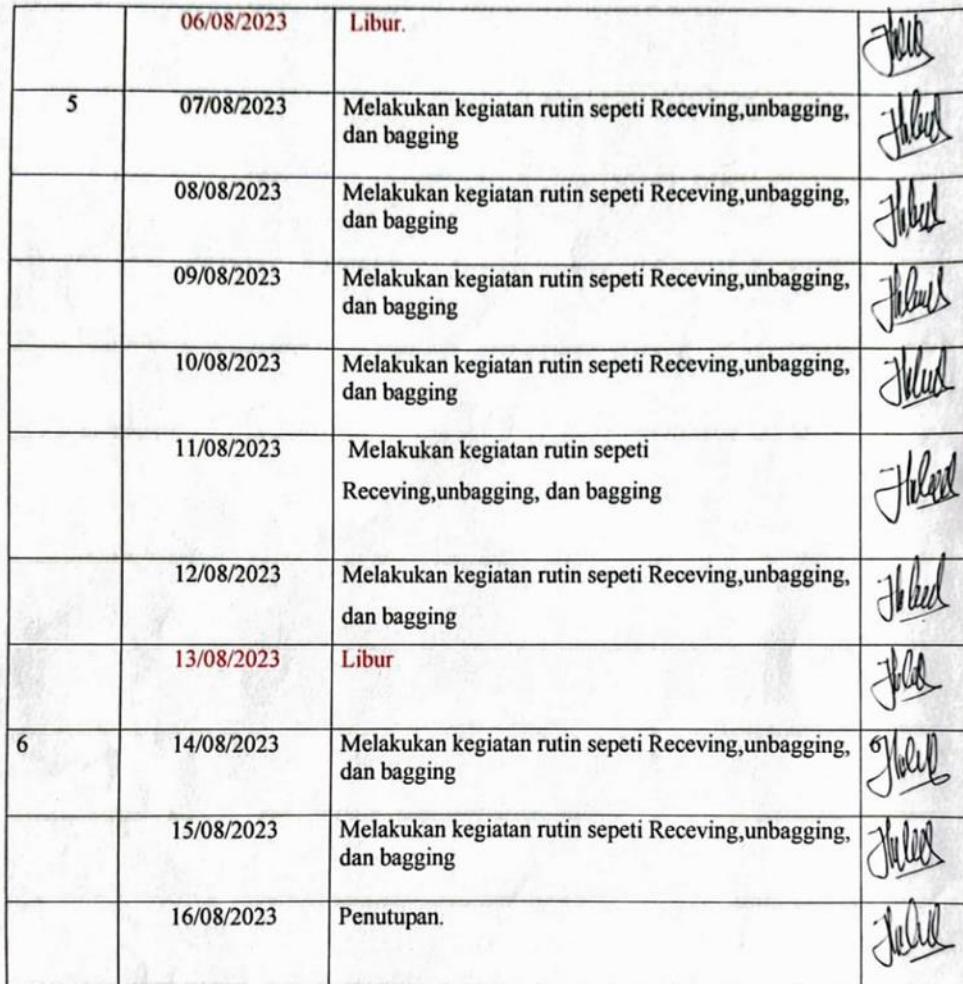 06/08/2023 Libur.
5 07/08/2023 Melakukan kegiatan rutin sepeti Receving,unbagging,
dan bagging
08/08/2023 Melakukan kegiatan rutin sepeti Receving,unbagging,
dan bagging
09/08/2023 Melakukan kegiatan rutin sepeti Receving,unbagging,
dan bagging
10/08/2023 Melakukan kegiatan rutin sepeti Receving,unbagging,
dan bagging
11/08/2023 Melakukan kegiatan rutin sepeti
Receving,unbagging, dan bagging
12/08/2023 Melakukan kegiatan rutin sepeti Receving,unbagging,
dan bagging
13/08/2023 Libur
6 14/08/2023 Melakukan kegiatan rutin sepeti Receving,unbagging,
dan bagging
15/08/2023 Melakukan kegiatan rutin sepeti Receving,unbagging,
dan bagging
16/08/2023 Penutupan.